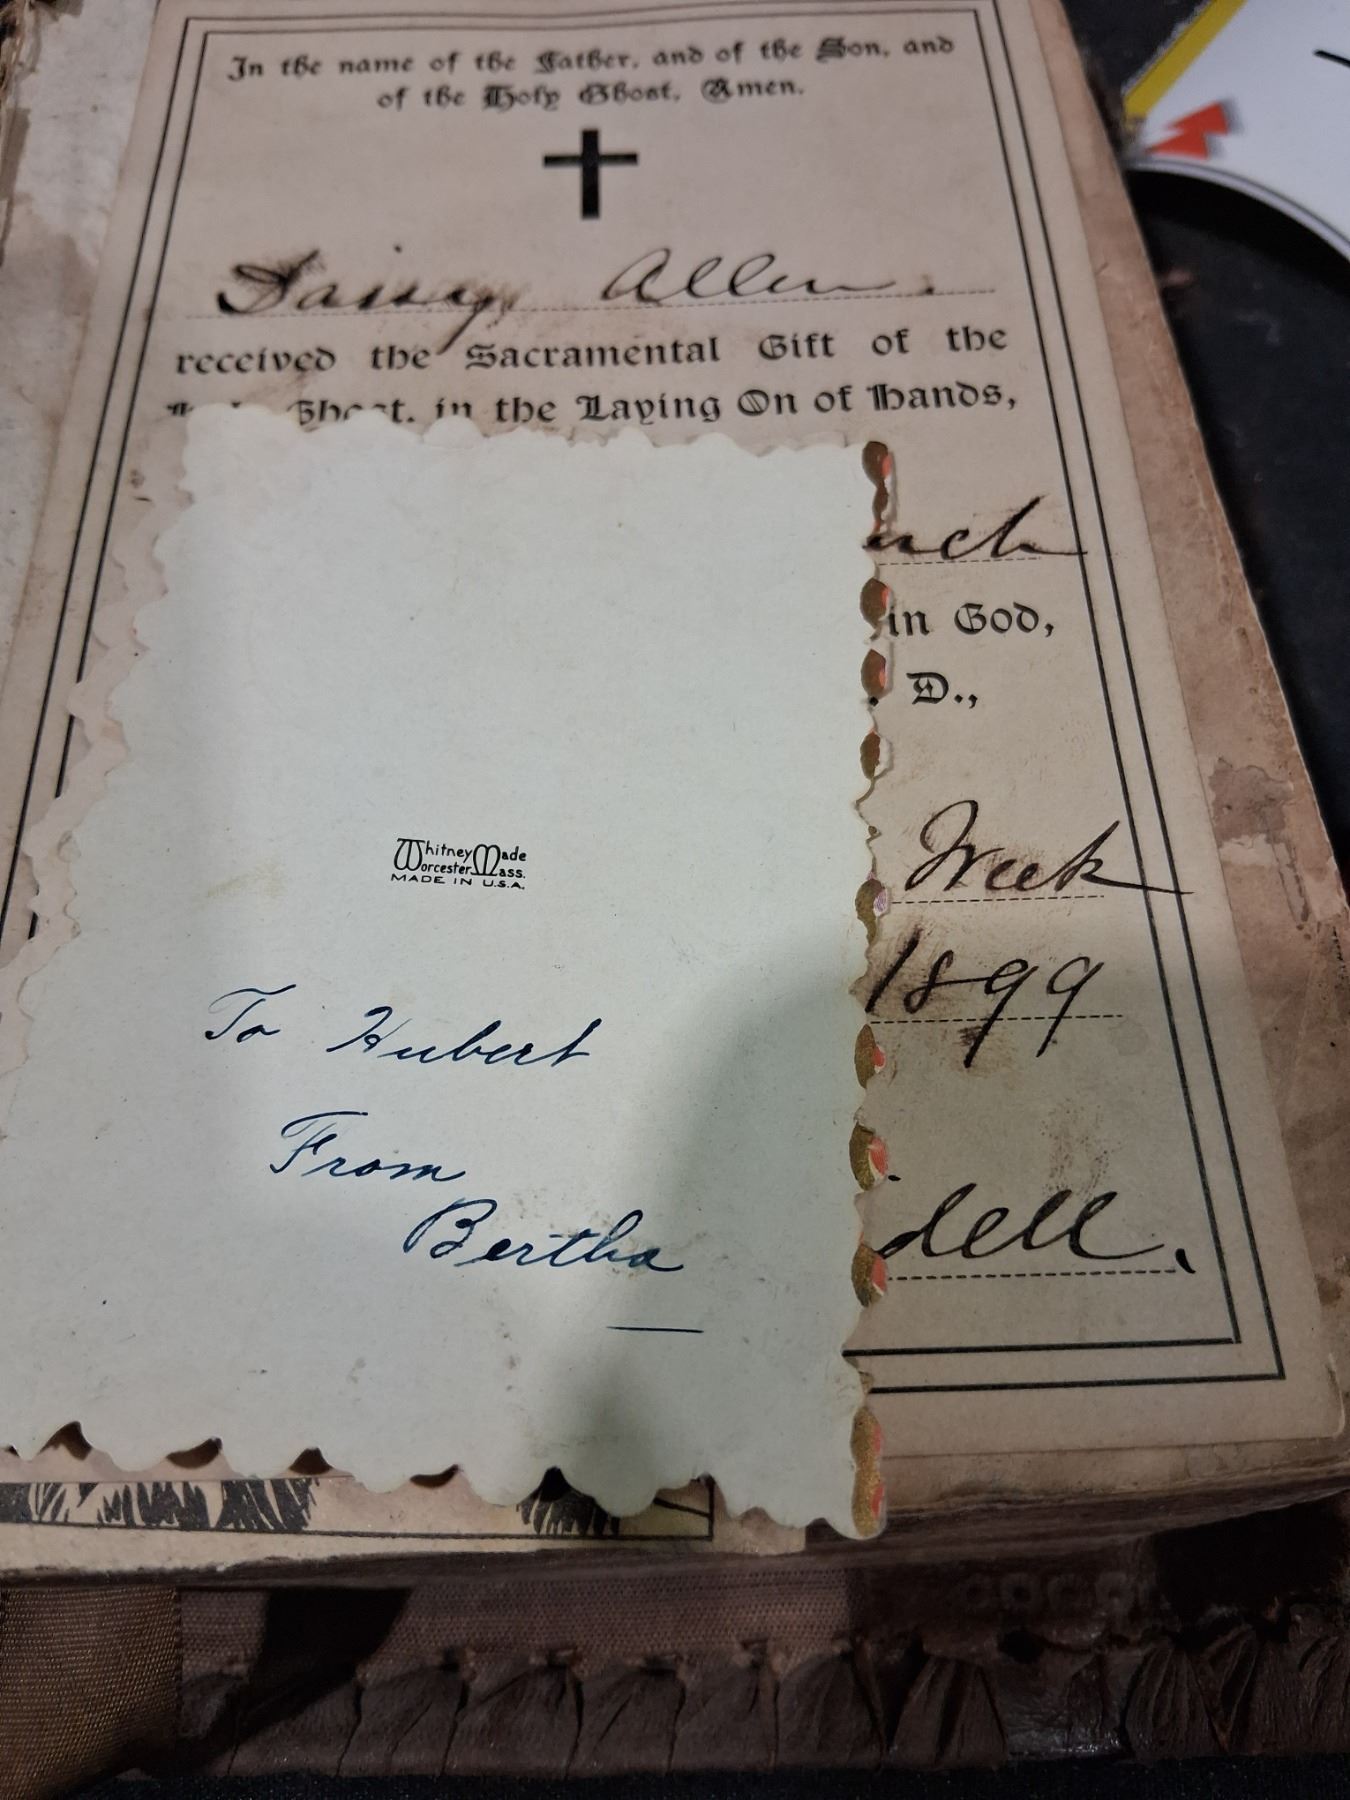 In the name of the Father, and of the Son, and
of the Holy Ghost, Amen.
Daisy Allen.
received the Sacramental Gift of the
Ghost, in the Laying On of Hands,
in God,
D.,
Week
1899
dell.
Whitney Made
Worcester Mass.
MADE IN U.S.A.
To Hubert
From
Bertha